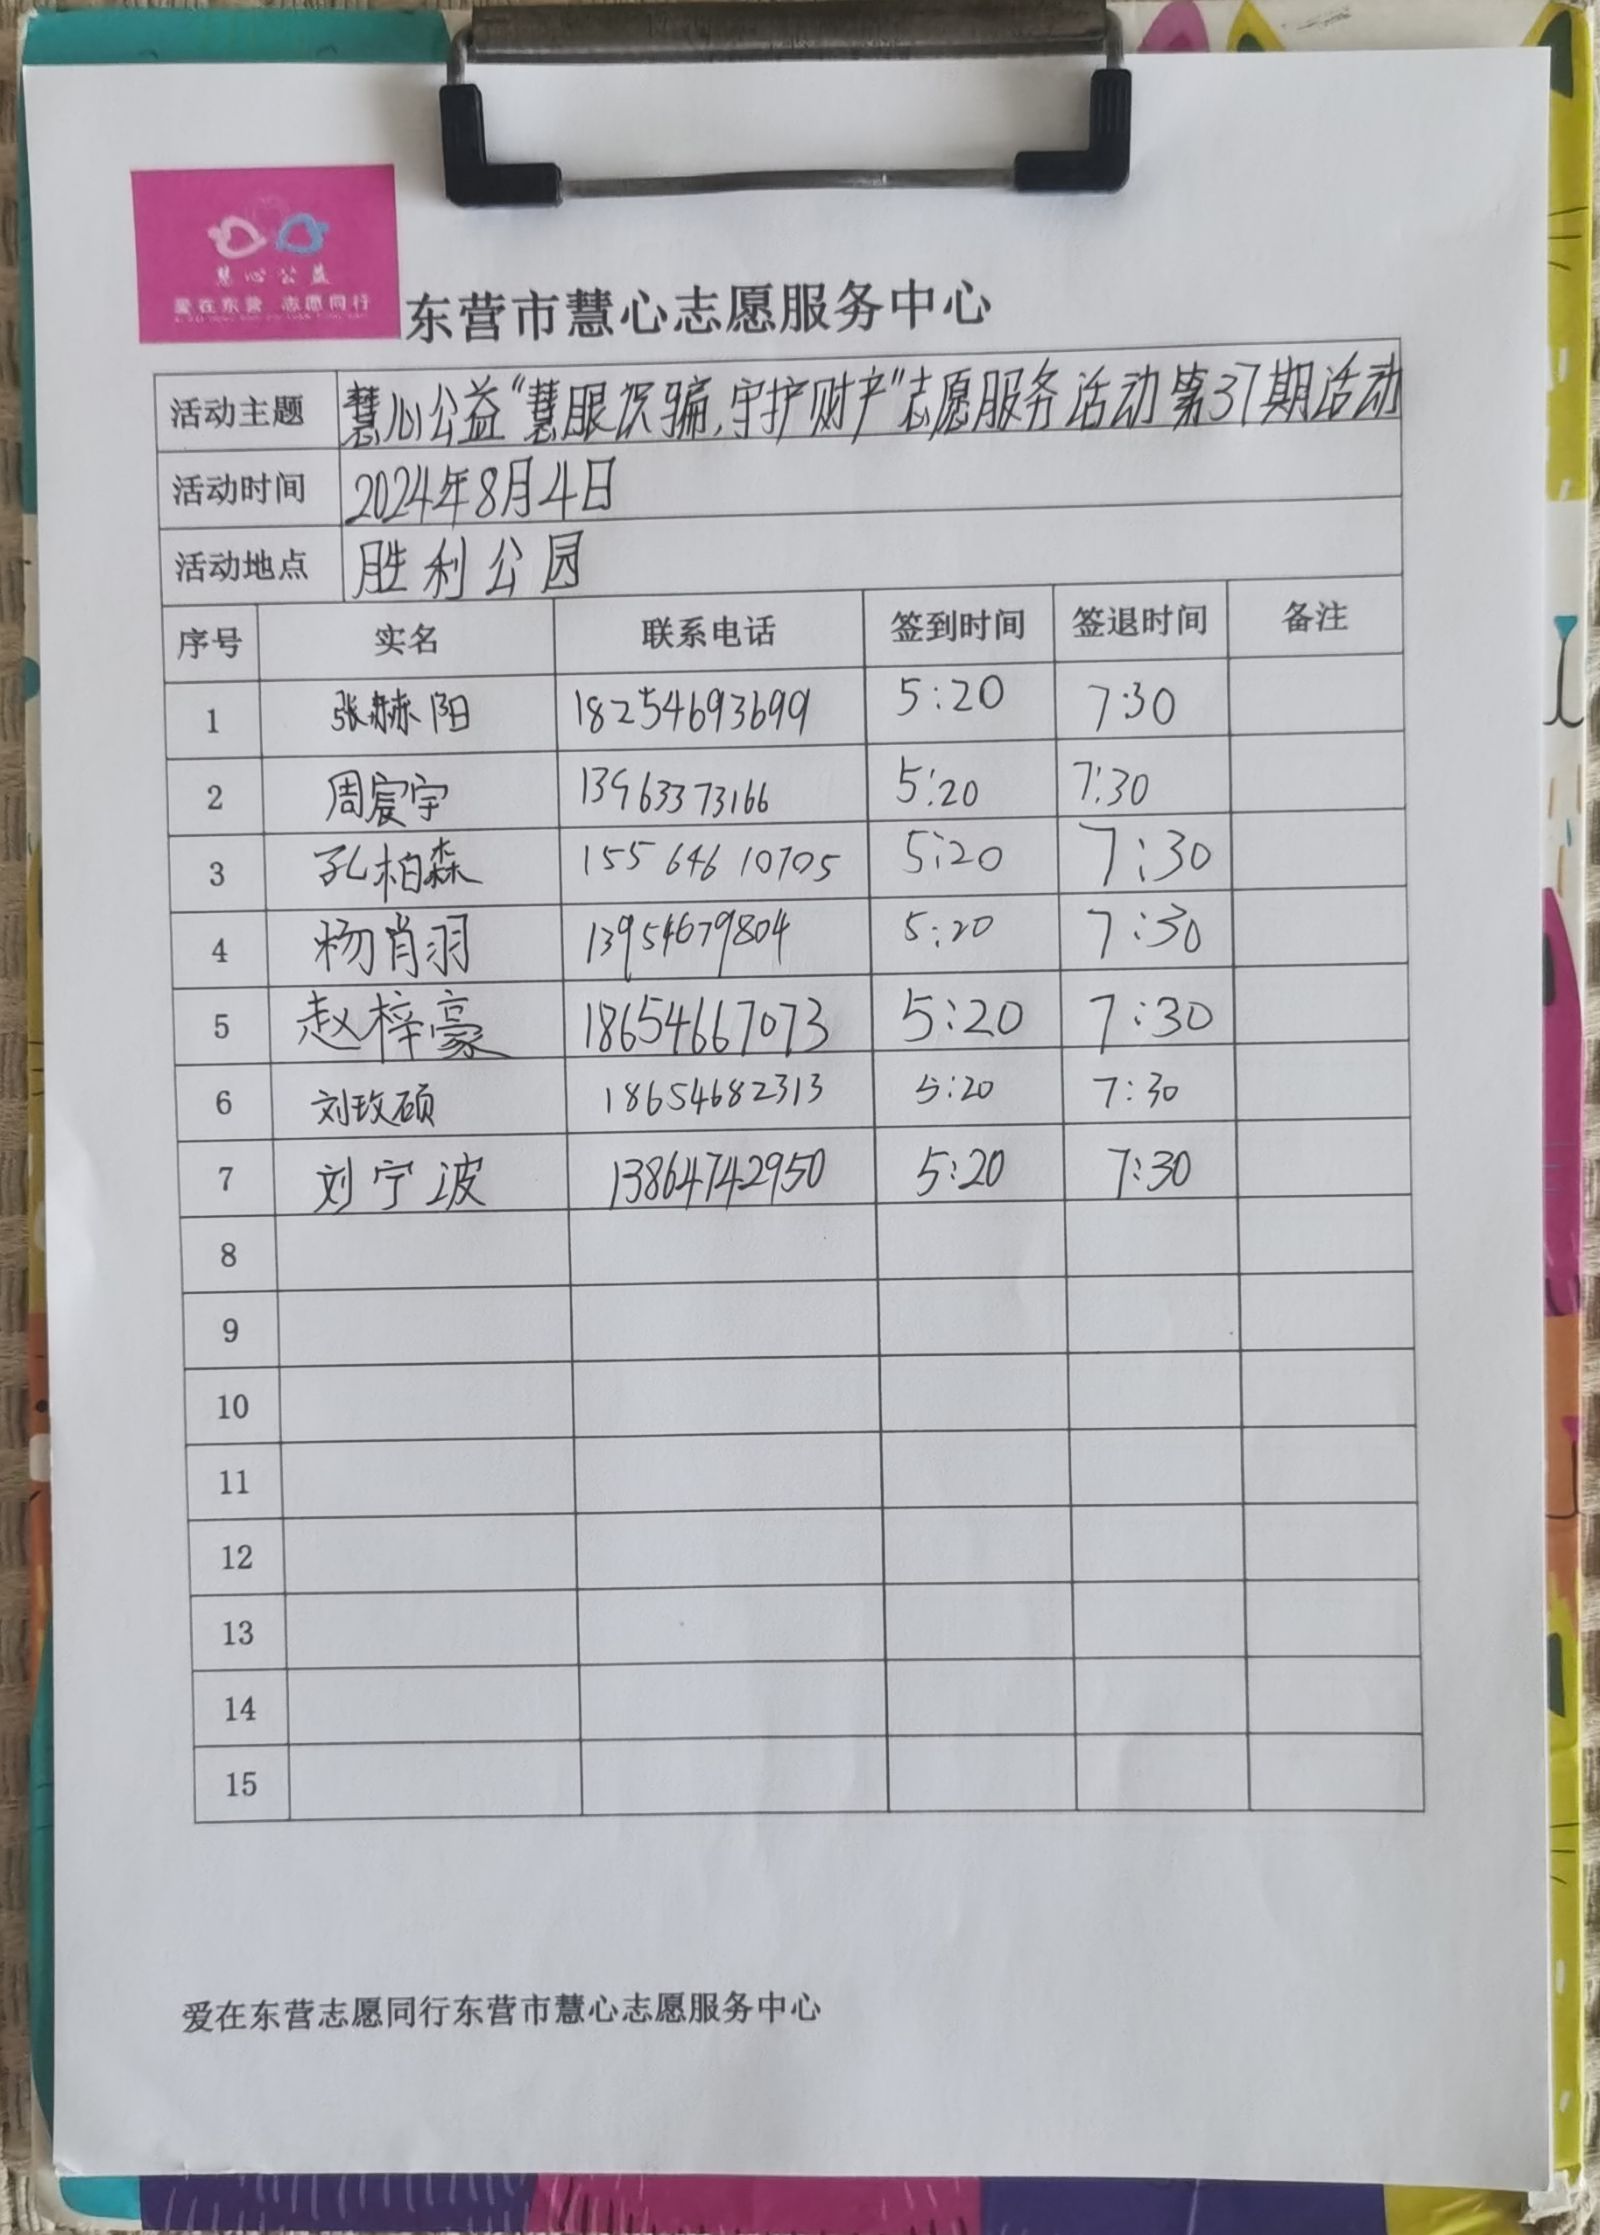 慧心公益
爱在东营 志愿同行
东营市慧心志愿服务中心
活动主题 慧心公益“慧眼识骗,守护财产”志愿服务活动第37期活动
活动时间 2024年8月4日
活动地点 胜利公园
序号 实名 联系电话 签到时间 签退时间 备注
1 张赫阳 18254693699 5:20 7:30
2 周宸宇 13963373166 5:20 7:30
3 孔柏森 155 646 10705 5:20 7:30
4 杨肖羽 13954679804 5:20 7:30
5 赵梓豪 18654667073 5:20 7:30
6 刘玫硕 18654682313 5:20 7:30
7 刘宁波 13864742950 5:20 7:30
8
9
10
11
12
13
14
15
爱在东营志愿同行东营市慧心志愿服务中心